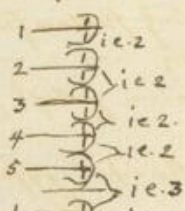 1
ie.2
2
ie 2
3
ie 2.
4
ie.2
5
ie.3